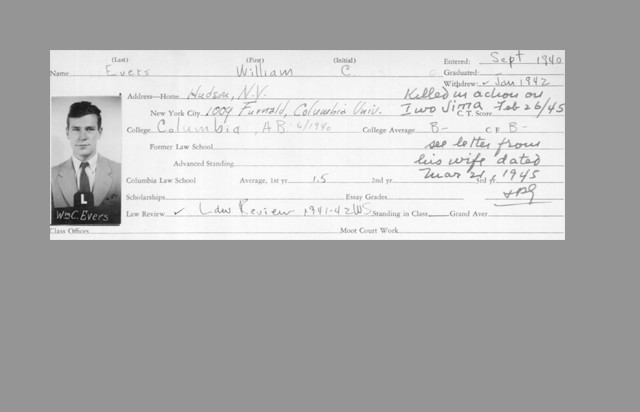 (Last) (First) (Initial) Entered: Sept 1940
Name Evers William C. Graduated:
Withdrew: ✓ Jan 1942
Address—Home Hudson, N.Y. Killed in action on
New York City 1009 Furnald, Columbia Univ. Iwo Jima Feb 26/45
C.T. Score
College Columbia, AB - 6/1940 College Average B- C.E. B-
Former Law School see letter from
Advanced Standing his wife dated
Columbia Law School Average, 1st yr. 1.5 2nd yr. 3rd yr. Mar 21, 1945
Scholarships Essay Grades
Law Review ✓ Law Review 1941-42 WS Standing in Class Grand Aver.
Class Offices Moot Court Work
L
Wm C. Evers